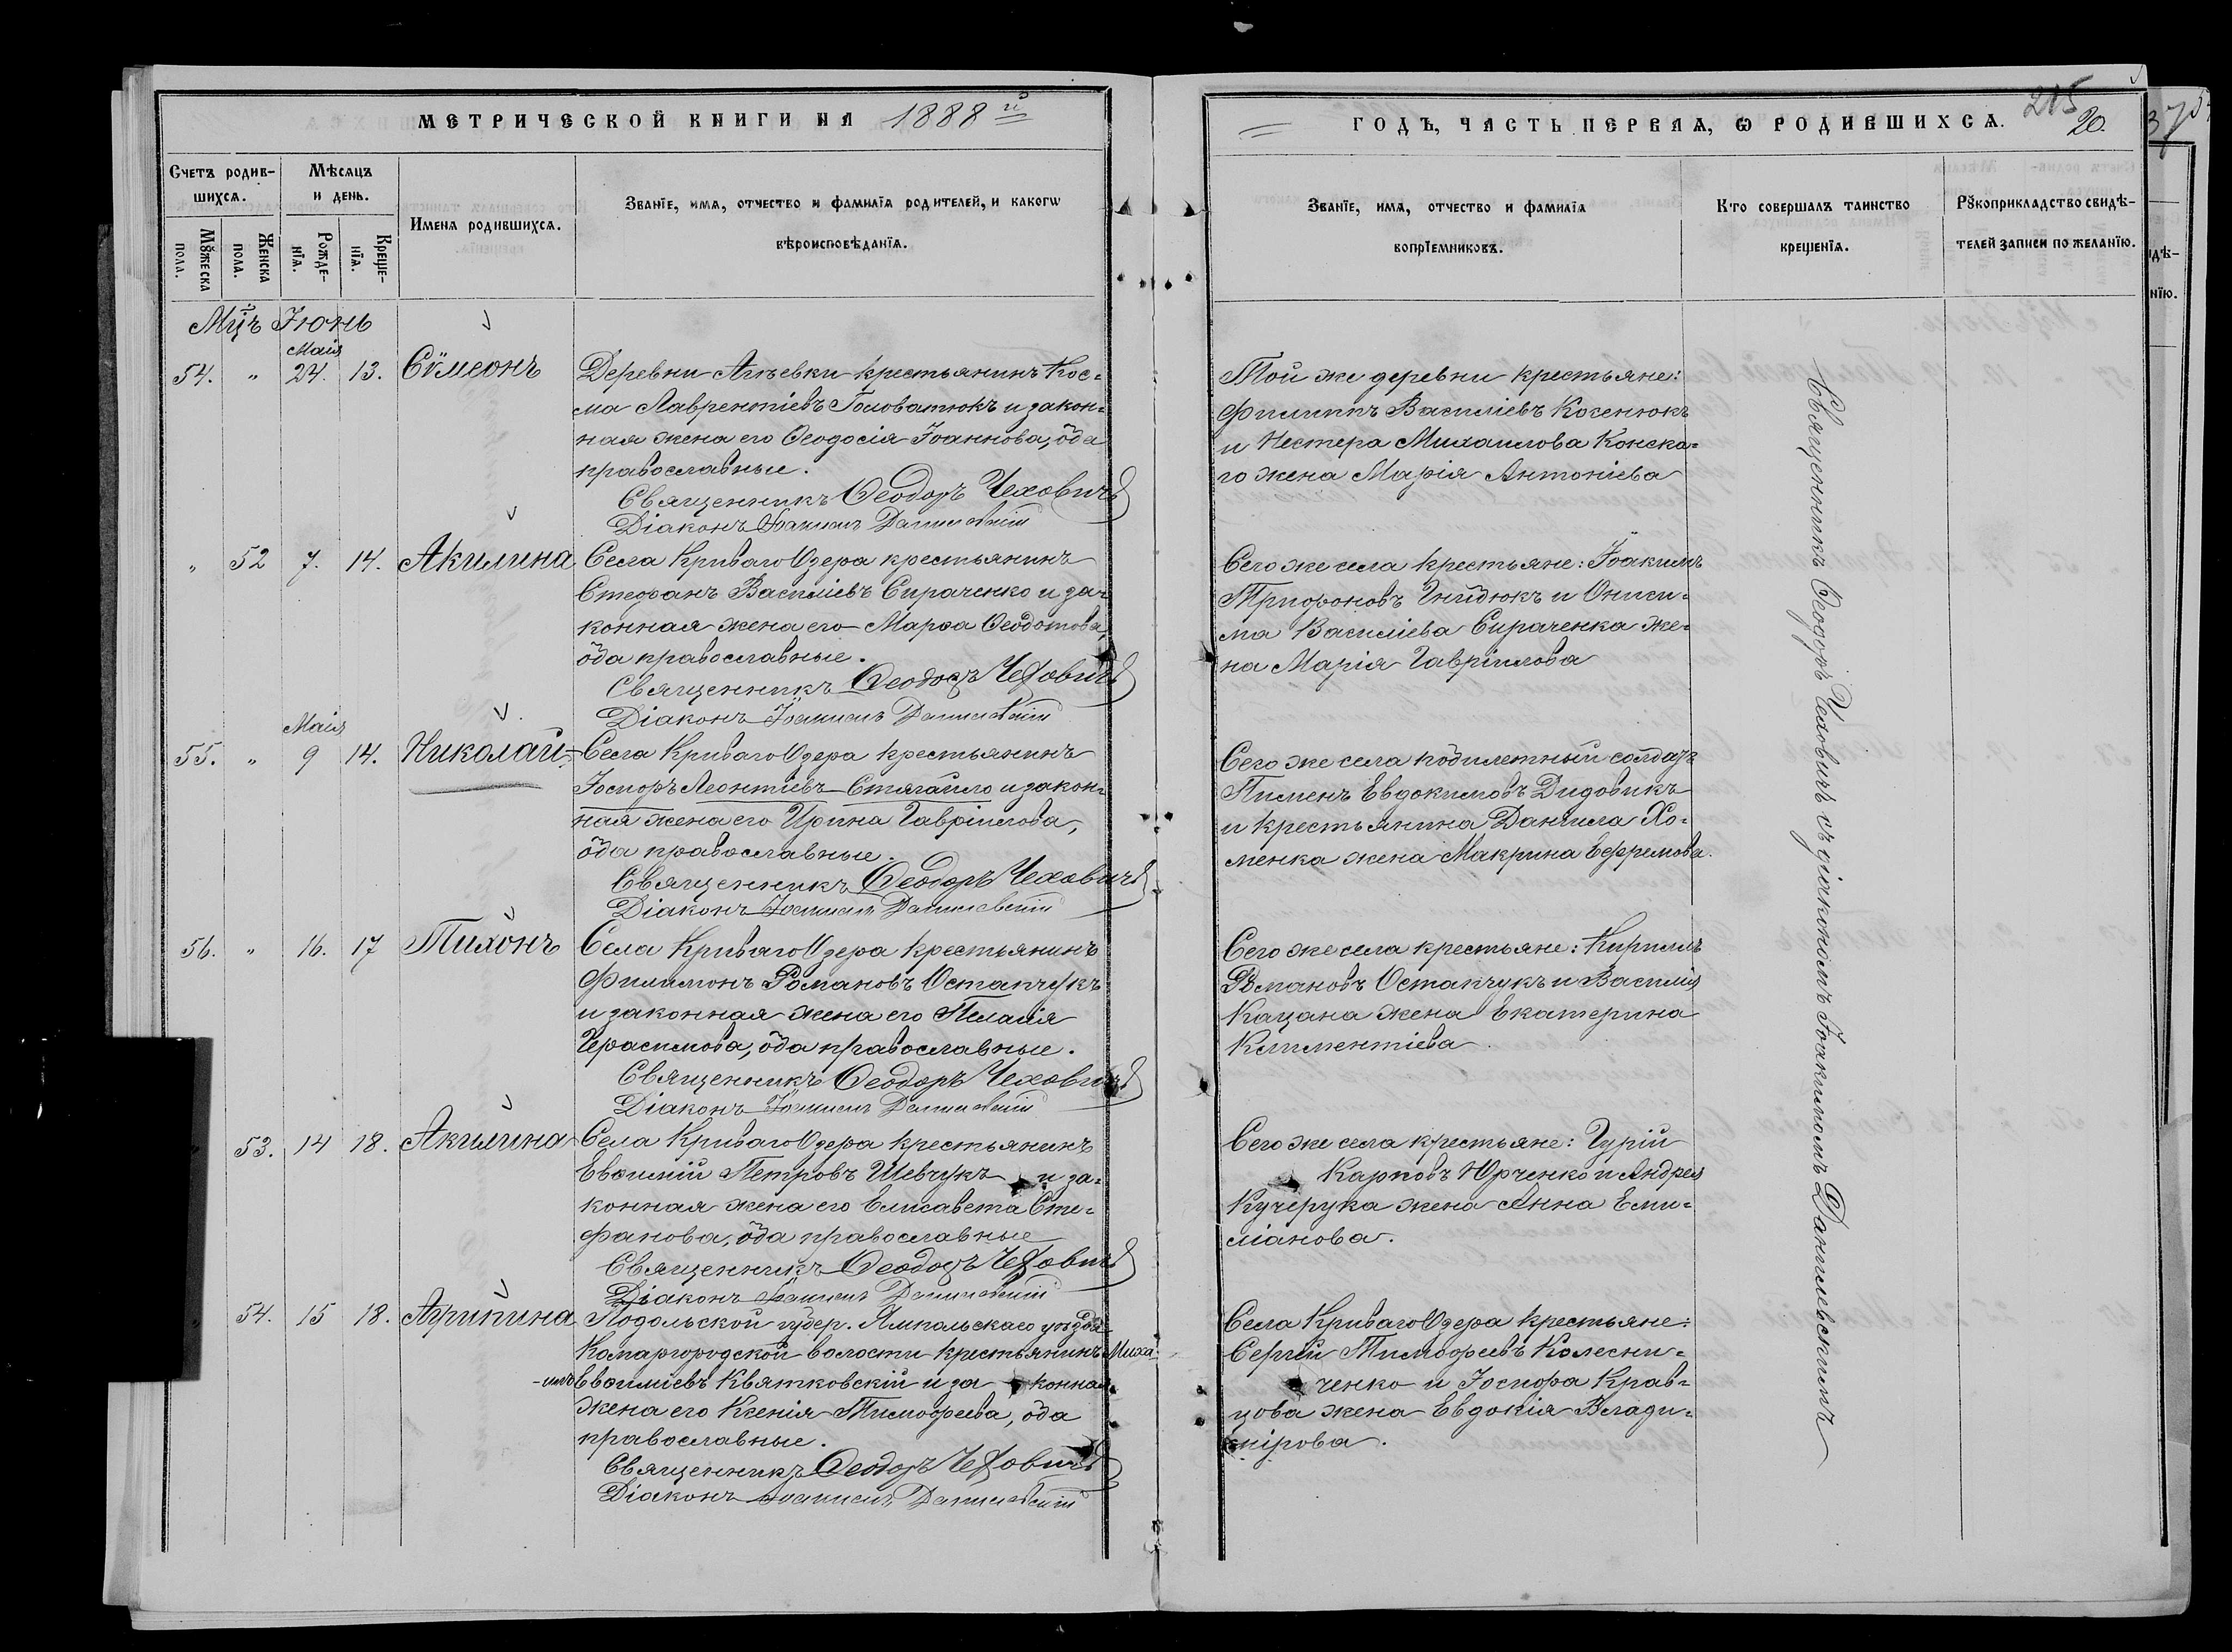 МЕТРИЧЕСКОЙ КНИГИ НА 1888й
ГОДЪ, ЧАСТЬ ПЕРВАЯ, Ѡ РОДИВШИХСЯ.
215
20.
37
Счетъ родив-
шихся.
Мѣсяцъ
и день.
Имена родившихся.
Званїе, имя, отчество и фамилїя родителей, и какогѡ
вѣроисповѣданїя.
Мꙋжеска
пола.
Женска
пола.
Рожде-
нїя.
Креще-
нїя.
Званїе, имя, отчество и фамилїя
воспрїемниковъ.
Кто совершалъ таинство
крещенїя.
Рꙋкоприкладство свидѣ-
телей записи по желанїю.
идѣ-
нїю.
Мцъ Іюнь
Маія
54. " 24. 13. Сѵмеонъ
Деревни Агѣевки крестьянинъ Кос=
ма Лаврентіевъ Головатюкъ и закон=
ная жена его Ѳеодосія Іоаннова, ѻба
православные.
Священникъ Ѳеодоръ Чеховичъ
Діаконъ Іоакимъ Данилевскій
Той же деревни крестьяне:
Филиппъ Василіевъ Косенюкъ
и Нестера Михаилова Конска=
го жена Марія Антоніева
" 52 7. 14. Акилина
Села Криваго Озера крестьянинъ
Стефанъ Василіевъ Сираченко и за=
конная жена его Марѳа Ѳеодотова,
ѻба православные.
Священникъ Ѳеодоръ Чеховичъ
Діаконъ Іоакимъ Данилевскій
Сего же села крестьяне: Іоакимъ
Трифоновъ Гнидюкъ и Ониси=
ма Василіева Сираченка же=
на Марія Гавріилова
Маія
55. " 9 14. Николай
Села Криваго Озера крестьянинъ
Іосифъ Леонтіевъ Стягайло и закон=
ная жена его Ирина Гавріилова,
ѻба православные.
Священникъ Ѳеодоръ Чеховичъ
Діаконъ Іоакимъ Данилевскій
Сего же села солдатъ
Пименъ Евдокимовъ Дидовикъ
и крестьянина Даніила Хо=
менка жена Макрина Ефремова.
56. " 16. 17 Тихонъ
Села Криваго Озера крестьянинъ
Филимонъ Романовъ Остапчукъ
и законная жена его Пелагія
Герасимова, ѻба православные.
Священникъ Ѳеодоръ Чеховичъ
Діаконъ Іоакимъ Данилевскій
Сего же села крестьяне: Кириллъ
Романовъ Остапчукъ и Василія
Кацана жена Екатерина
Климентіева.
53. 14 18. Акилина
Села Криваго Озера крестьянинъ
Евѳимій Петровъ Шевчукъ и за=
конная жена его Елисавета Сте=
фанова, ѻба православные
Священникъ Ѳеодоръ Чеховичъ
Діаконъ Іоакимъ Данилевскій
Сего же села крестьяне: Гурій
Карповъ Юрченко и Андрея
Кучерука жена Анна Еми=
ліанова.
54. 15 18. Агрипина
Подольской губер. Ямпольскаго уѣзда
Комаргородской волости крестьянинъ Миха=
-илъ Евѳиміевъ Квятковскій и законная
жена его Ксенія Тимоѳеева, ѻба
православные.
Священникъ Ѳеодоръ Чеховичъ
Діаконъ Іоакимъ Данилевскій
Села Криваго Озера крестьяне:
Сергій Тимоѳеевъ Колесни=
ченко и Іосифа Крав=
цова жена Евдокія Влади=
мірова.
Священникъ Ѳеодоръ Чеховичъ съ діакономъ Іоакимомъ Данилевскимъ